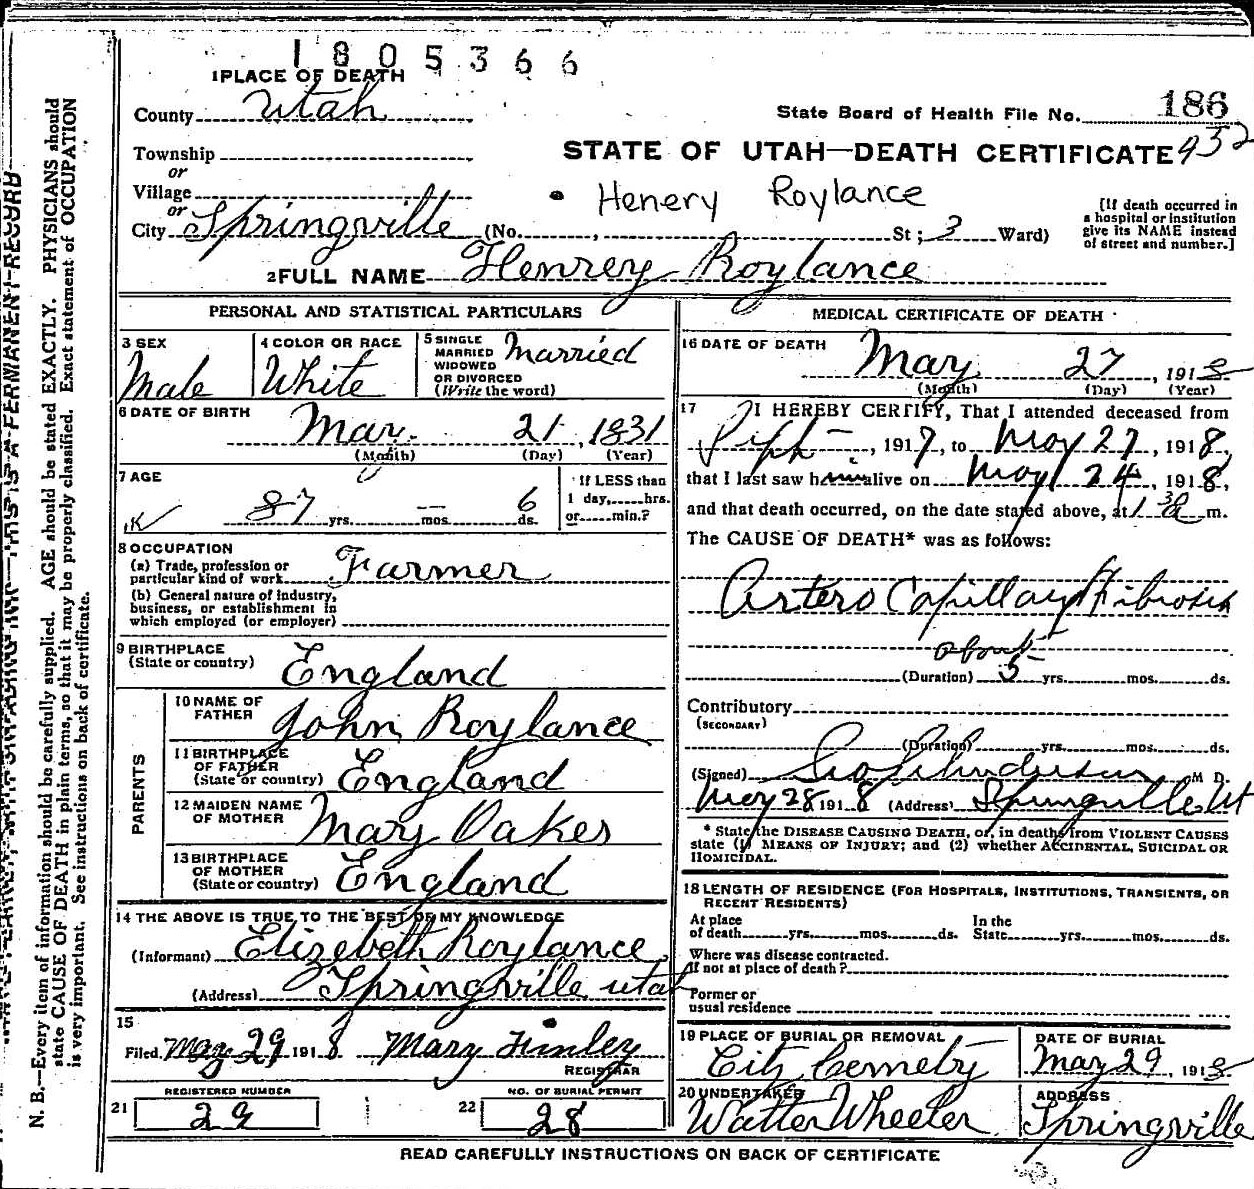 1805366
1 PLACE OF DEATH
County Utah
State Board of Health File No. 186
Township
STATE OF UTAH—DEATH CERTIFICATE 952
or
Village
Henery Roylance
or
City Springville (No. , St; 3 Ward)
[If death occurred in a hospital or institution give its NAME instead of street and number.]
2 FULL NAME Henrey Roylance
PERSONAL AND STATISTICAL PARTICULARS
3 SEX
Male
4 COLOR OR RACE
White
5 SINGLE MARRIED WIDOWED OR DIVORCED (Write the word)
Married
6 DATE OF BIRTH
May 21, 1831
(Month) (Day) (Year)
7 AGE
87 yrs. — mos. 6 ds.
If LESS than 1 day, hrs. or min.?
8 OCCUPATION
(a) Trade, profession or particular kind of work Farmer
(b) General nature of industry, business, or establishment in which employed (or employer)
9 BIRTHPLACE
(State or country) England
PARENTS
10 NAME OF FATHER John Roylance
11 BIRTHPLACE OF FATHER (State or country) England
12 MAIDEN NAME OF MOTHER Mary Oakes
13 BIRTHPLACE OF MOTHER (State or country) England
14 THE ABOVE IS TRUE TO THE BEST OF MY KNOWLEDGE
(Informant) Elizebeth Roylance
(Address) Springville utah
15
Filed May 29 1918 Mary Finley
REGISTRAR
REGISTERED NUMBER
21 29
NO. OF BURIAL PERMIT
22 28
MEDICAL CERTIFICATE OF DEATH
16 DATE OF DEATH
May 27, 1918
(Month) (Day) (Year)
17 I HEREBY CERTIFY, That I attended deceased from
Sept —, 1917, to May 27, 1918,
that I last saw him alive on May 24, 1918,
and that death occurred, on the date stated above, at 1 30 a m.
The CAUSE OF DEATH* was as follows:
Artero Capillary Fibrosis
about
(Duration) 5 yrs. mos. ds.
Contributory
(SECONDARY)
(Duration) yrs. mos. ds.
(Signed) Geo M D.
May 28 1918 (Address) Springville Ut
* State the DISEASE CAUSING DEATH, or, in deaths from VIOLENT CAUSES
state (1) MEANS OF INJURY; and (2) whether ACCIDENTAL, SUICIDAL OR
HOMICIDAL.
18 LENGTH OF RESIDENCE (FOR HOSPITALS, INSTITUTIONS, TRANSIENTS, OR
RECENT RESIDENTS)
At place of death yrs. mos. ds. In the State yrs. mos. ds.
Where was disease contracted.
If not at place of death?
Former or
usual residence
19 PLACE OF BURIAL OR REMOVAL
City Cemetry
DATE OF BURIAL
May 29, 1918
20 UNDERTAKER
Walter Wheeler
ADDRESS
Springville
READ CAREFULLY INSTRUCTIONS ON BACK OF CERTIFICATE
N. B.—Every item of information should be carefully supplied. AGE should be stated EXACTLY. PHYSICIANS should
state CAUSE OF DEATH in plain terms, so that it may be properly classified. Exact statement of OCCUPATION
is very important. See instructions on back of certificate.
THIS IS A PERMANENT RECORD